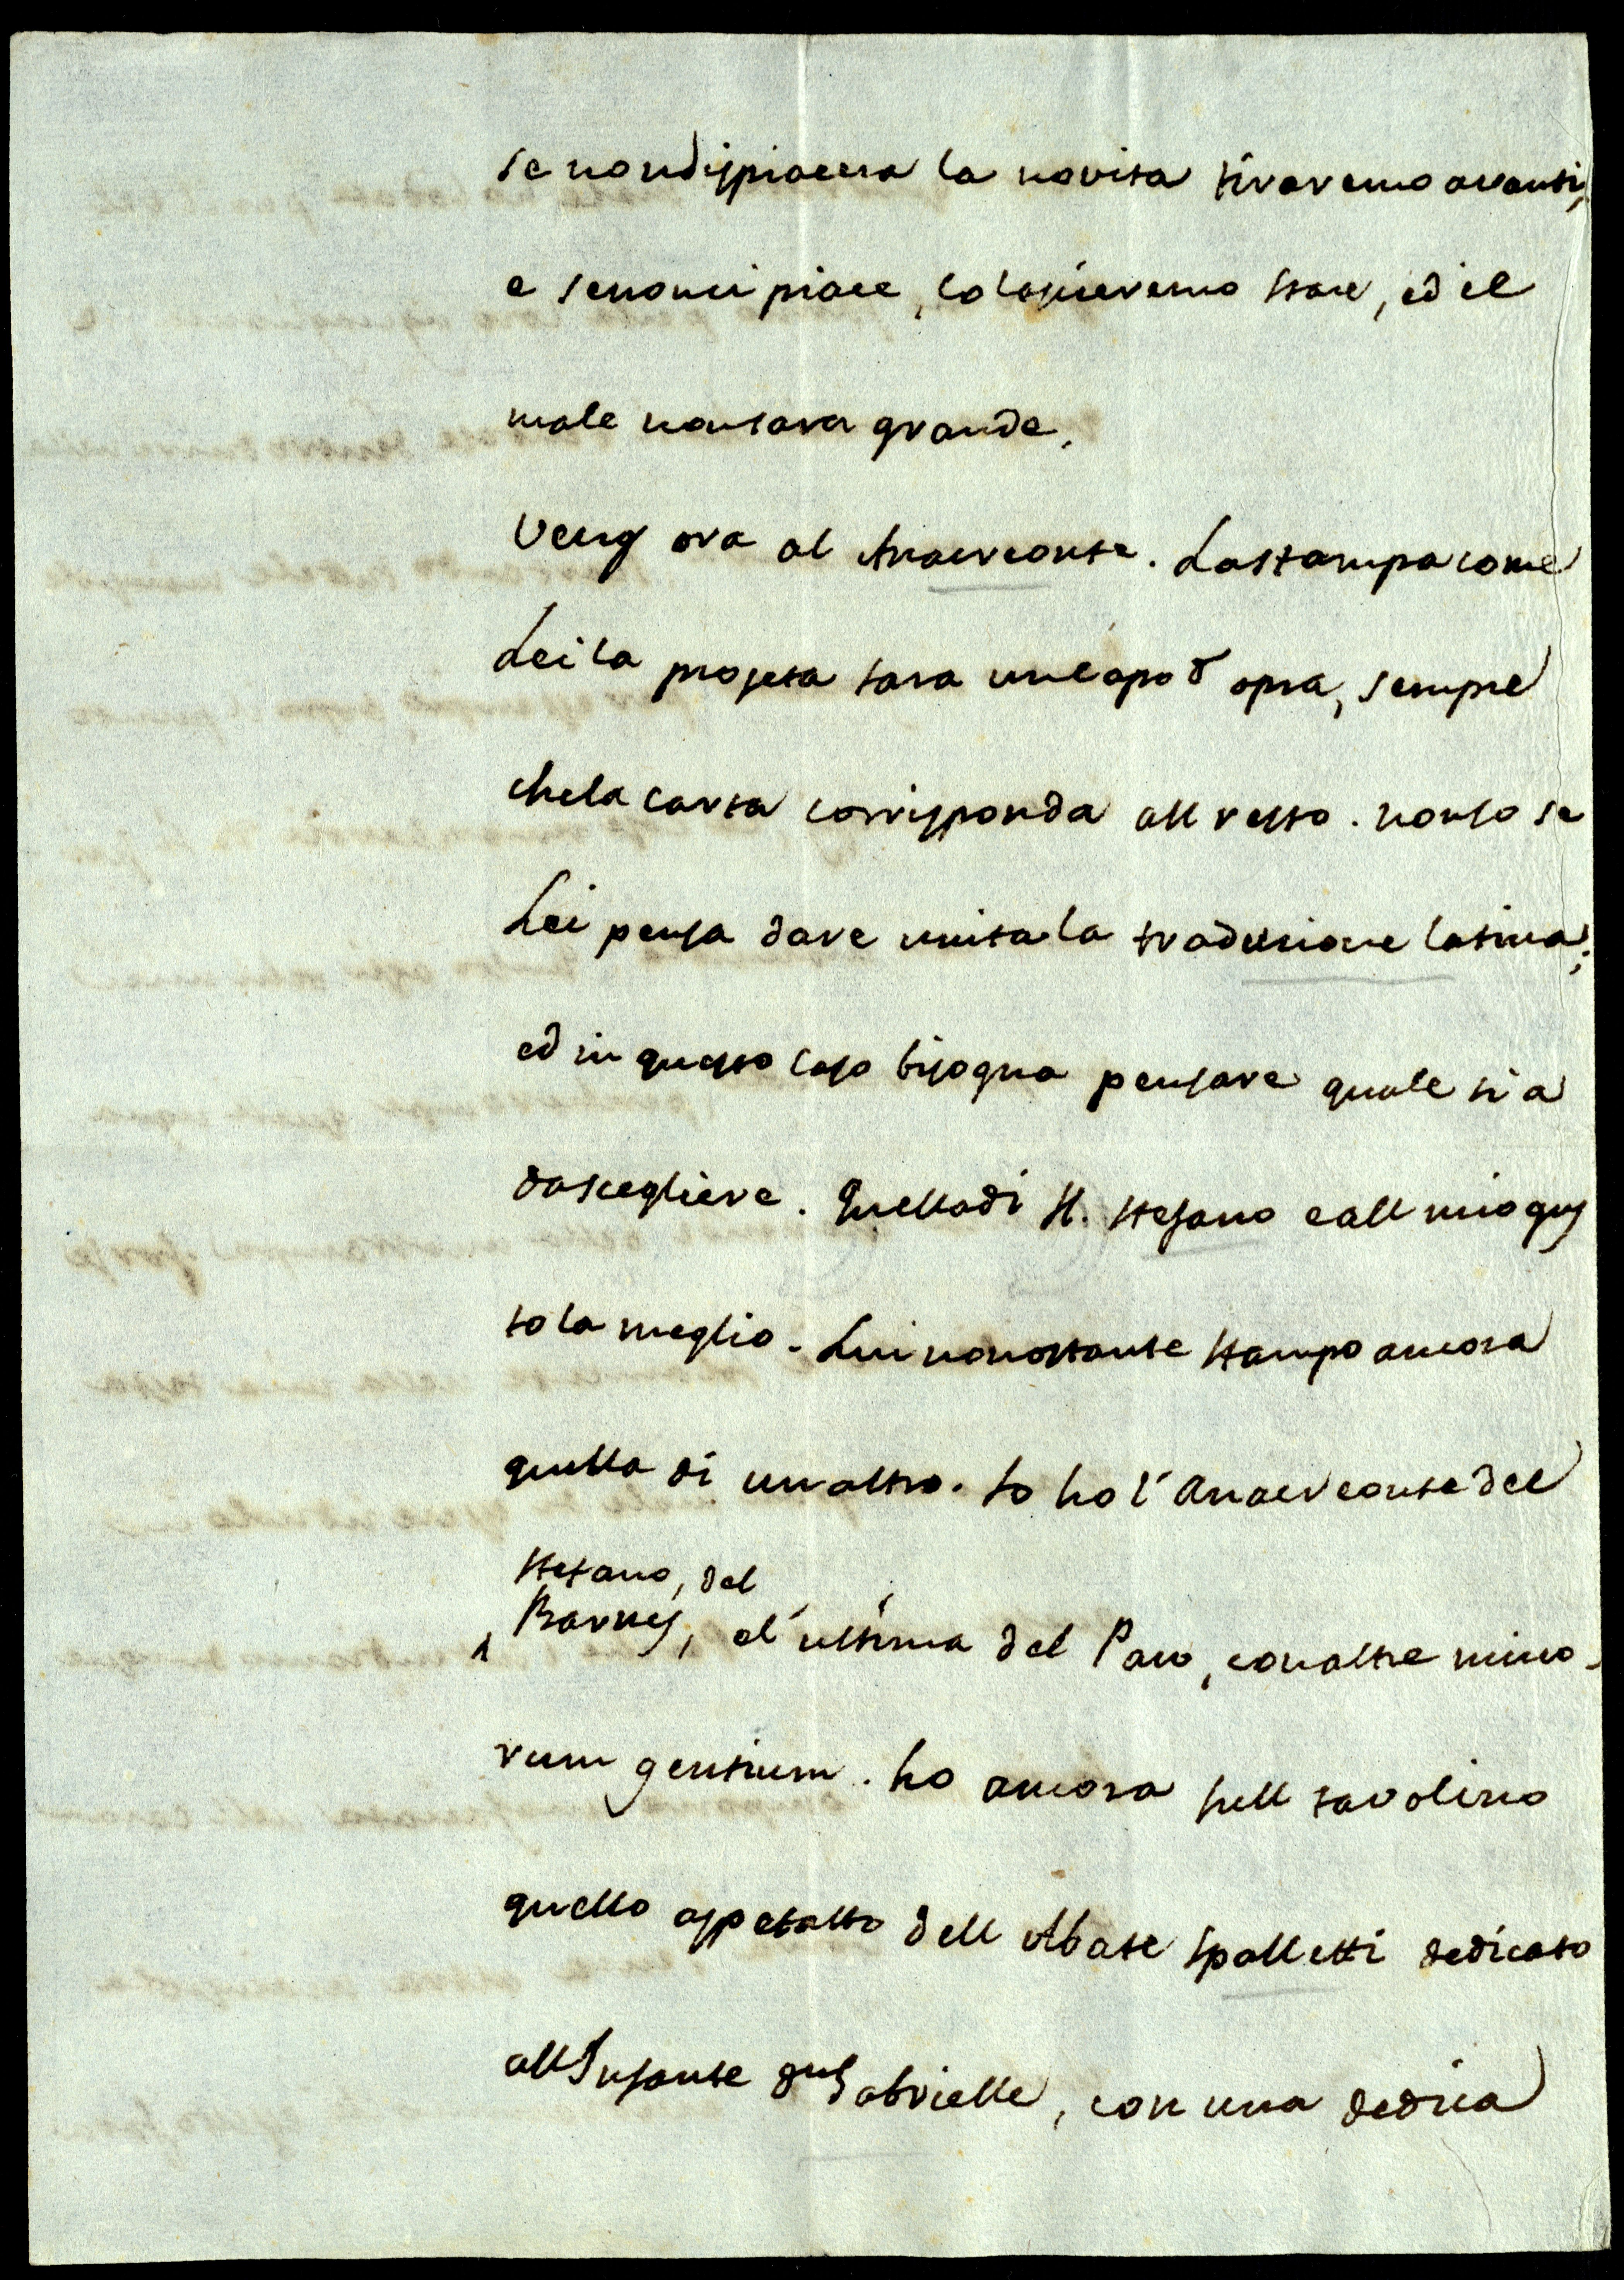 se nondispiacera la novita tiraremo avanti,
e senonci piace, lo lascieremo stare, ed il
male nonsara grande.
Vengo ora al Anacreonte. La stampa come
Lei la projeta sara un capo d opra, sempre
che la carta corrisponda all resto. non so se
Lei pensa dare unita la traduzione latina;
ed in questo caso bisogna pensare quale sia
da scegliere. Quella di H. Stefano e all mio gus
to la meglio. Lui nonostante stampo ancora
quella di un altro. Io ho l'Anacreonte del
Stefano, del
Barnes, el' ultima del Paw, con altre mino-
rum gentium. ho ancora sull tavolino
quello aspetatto dell Abate Spalletti dedicato
all Infante Gabrielle, con una dedica